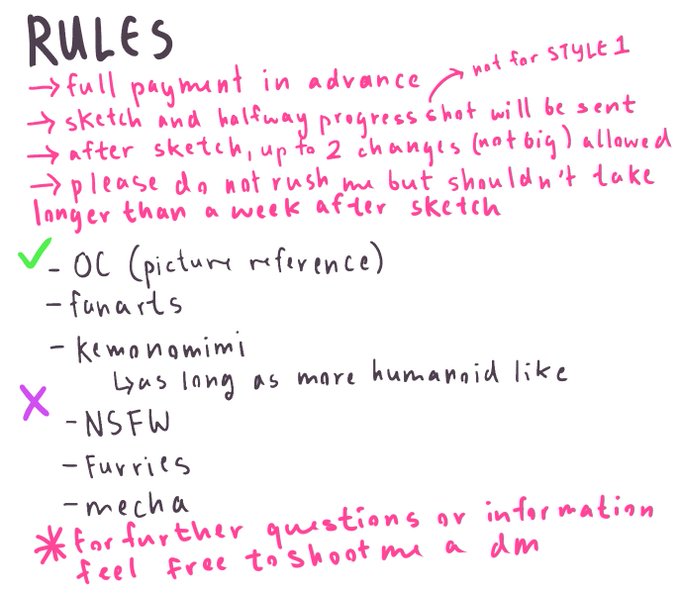 RULES
→ full payment in advance
→ not for STYLE 1
→ sketch and halfway progress shot will be sent
→ after sketch, up to 2 changes (not big) allowed
→ please do not rush me but shouldn't take
longer than a week after sketch
✓ - OC (picture reference)
- fanarts
- kemonomimi
↳ as long as more humanoid like
X - NSFW
- Furries
- mecha
* for further questions or information
feel free to shoot me a dm